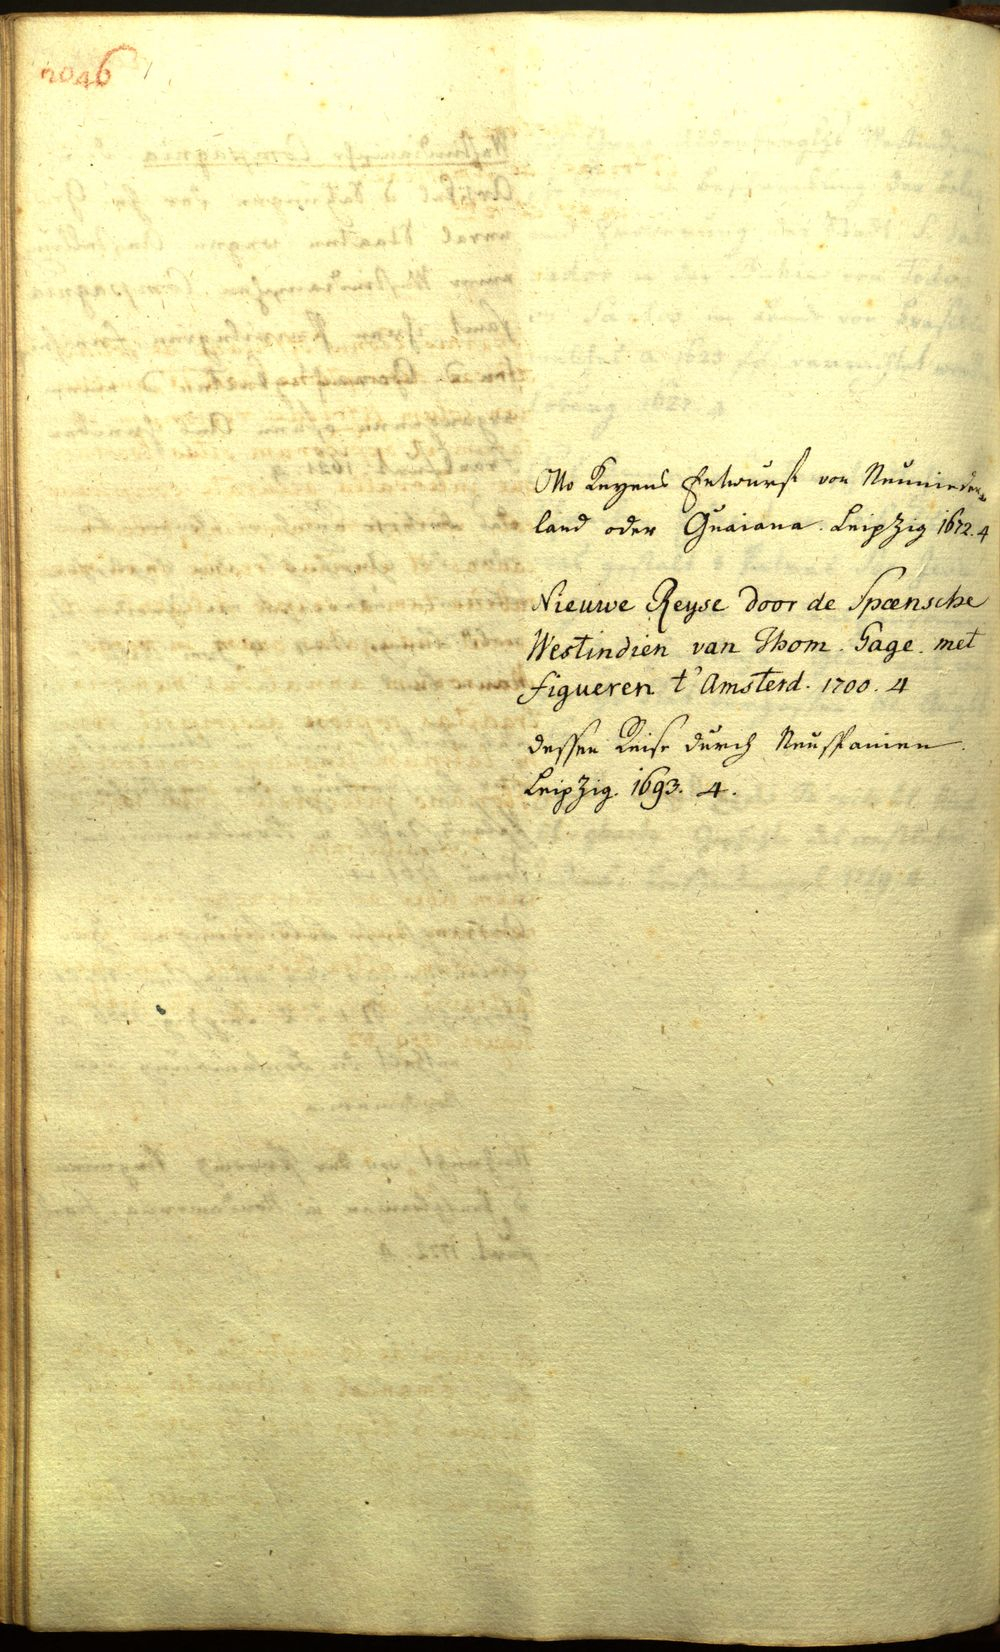 2046
Otto Keyens Entwurf von Neunieder-
land oder Guaiana. Leipzig 1672. 4
Nieuwe Reyse door de Spaensche
Westindien van Thom. Gage. met
figueren t'Amsterd. 1700. 4
dessen Reise durch Neuspanien.
Leipzig. 1693. 4.